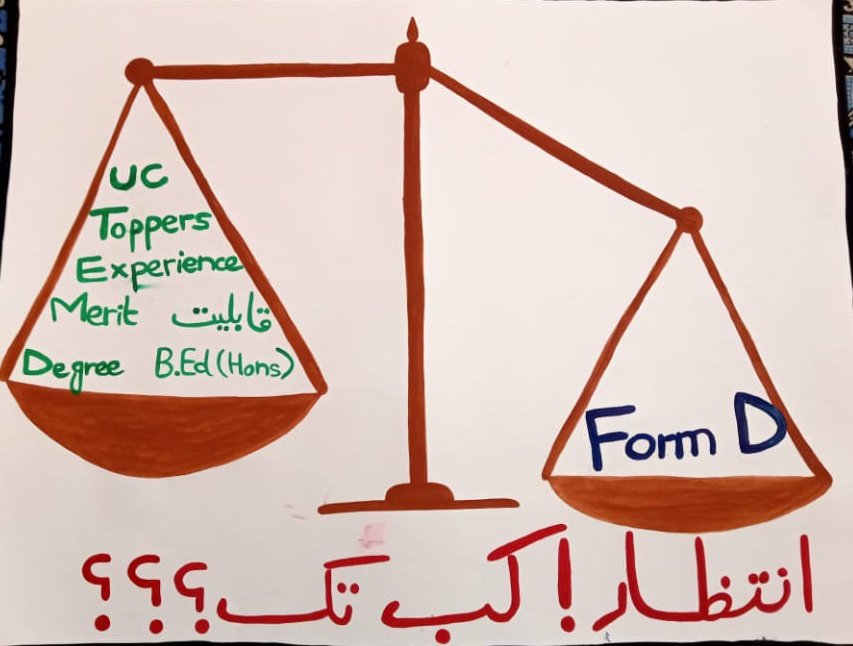 UC
Toppers
Experience
Merit قابلیت
Degree B.Ed (Hons)
Form D
انتظار! کب تک؟؟؟